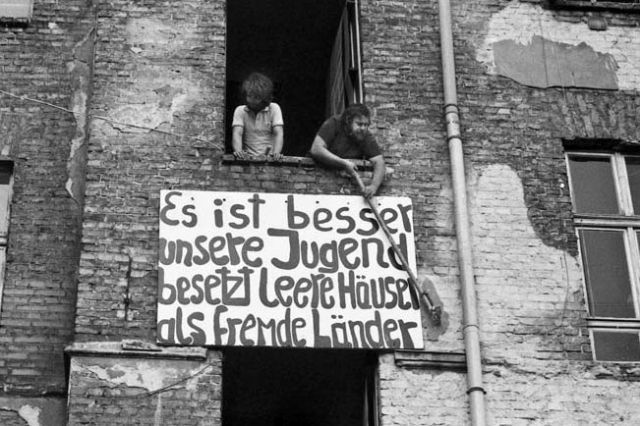 Es ist besser
unsere Jugend
besetzt Leere Häuser
als fremde Länder